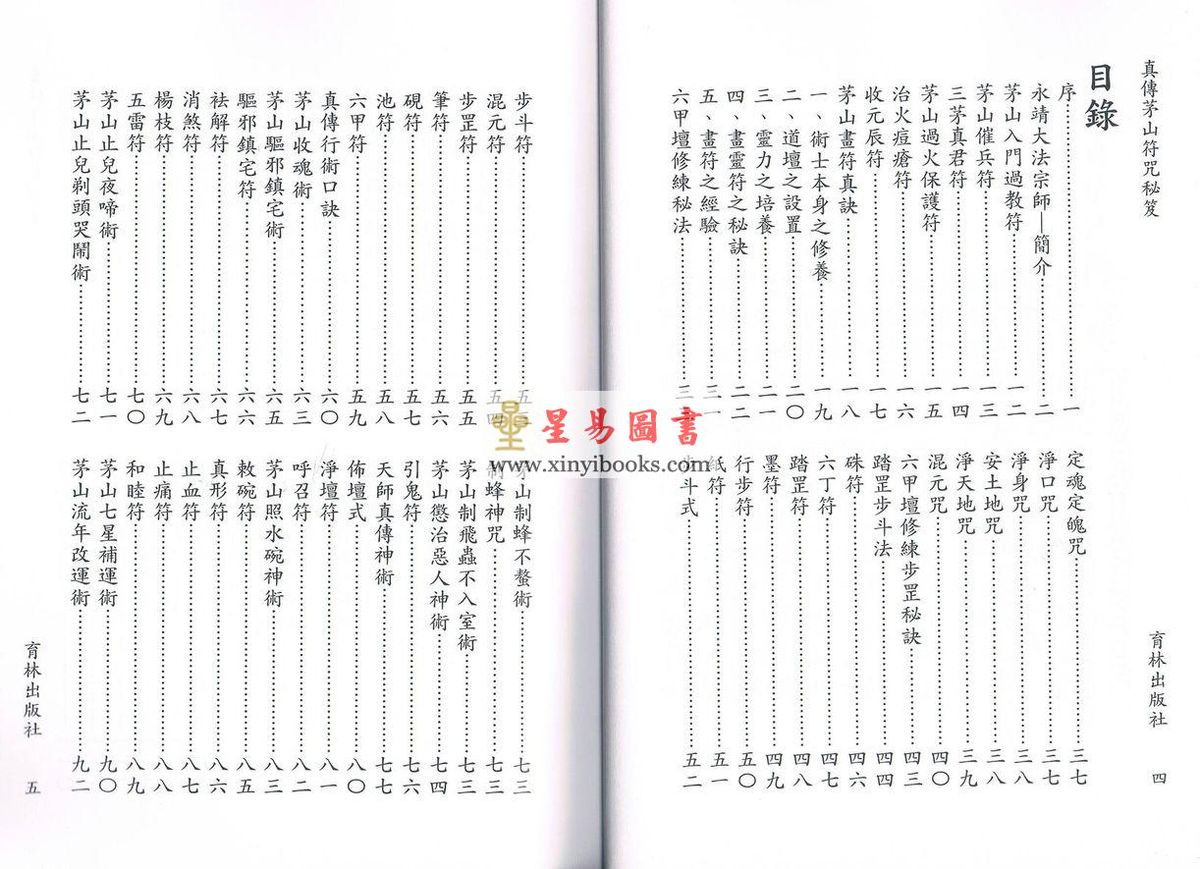 真傳茅山符咒秘笈
目錄
序⋯⋯一
永靖大法宗師—簡介⋯⋯二
茅山入門過教符⋯⋯一二
茅山催兵符⋯⋯一三
三茅真君符⋯⋯一四
茅山過火保護符⋯⋯一五
治火痘瘡符⋯⋯一六
收元辰符⋯⋯一七
茅山畫符真訣⋯⋯一八
一、術士本身之修養⋯⋯一九
二、道壇之設置⋯⋯二〇
三、靈力之培養⋯⋯二一
四、畫靈符之秘訣⋯⋯二二
五、畫符之經驗⋯⋯三一
六甲壇修練秘法⋯⋯三
定魂定魄咒⋯⋯三七
淨口咒⋯⋯三七
淨身咒⋯⋯三八
安土地咒⋯⋯三八
淨天地咒⋯⋯三九
混元咒⋯⋯四〇
六甲壇修練步罡秘訣⋯⋯四三
踏罡步斗法⋯⋯四四
硃符⋯⋯四四
六丁符⋯⋯四七
踏罡符⋯⋯四八
墨符⋯⋯四九
行步符⋯⋯五〇
紙符⋯⋯五一
步斗式⋯⋯五二
育林出版社
四
步斗符⋯⋯五三
混元符⋯⋯五四
步罡符⋯⋯五五
筆符⋯⋯五六
硯符⋯⋯五七
池符⋯⋯五八
六甲符⋯⋯五九
真傳行術口訣⋯⋯六〇
茅山收魂術⋯⋯六三
茅山驅邪鎮宅術⋯⋯六五
驅邪鎮宅符⋯⋯六六
祛解符⋯⋯六七
消煞符⋯⋯六八
楊枝符⋯⋯六九
五雷符⋯⋯七〇
茅山止兒夜啼術⋯⋯七一
茅山止兒剃頭哭鬧術⋯⋯七二
茅山制蜂不螫術⋯⋯七三
制蜂神咒⋯⋯七三
茅山制飛蟲不入室術⋯⋯七三
茅山懲治惡人神術⋯⋯七四
引鬼符⋯⋯七六
天師真傳神術⋯⋯七七
佈壇式⋯⋯八〇
淨壇符⋯⋯八一
呼召符⋯⋯八二
茅山照水碗神術⋯⋯八三
敕碗符⋯⋯八五
真形符⋯⋯八六
止血符⋯⋯八七
止痛符⋯⋯八八
和睦符⋯⋯八九
茅山七星補運術⋯⋯九〇
茅山流年改運術⋯⋯九二
育林出版社
五
星易圖書
www.xinyibooks.com